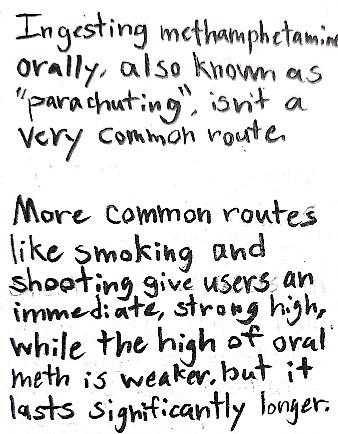 Ingesting methamphetamine
orally, also known as
"parachuting", isn't a
very common route.
More common routes
like smoking and
shooting give users an
immediate, strong high,
while the high of oral
meth is weaker, but it
lasts significantly longer.